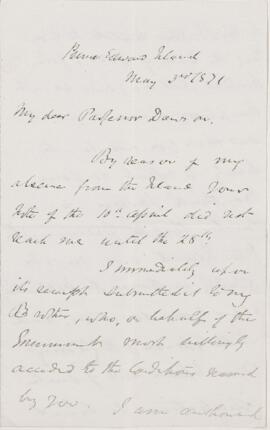 Prince Edward Island
May 3rd 1871
My dear Professor Dawson.
By reason of my
absence from the Island Your
Note of the 10th April did not
reach me until the 28th.
I immediately upon
its receipt submitted it to my
who, on behalf of the
Government most willingly
acceded to the Conditions named
by you. I am authorised